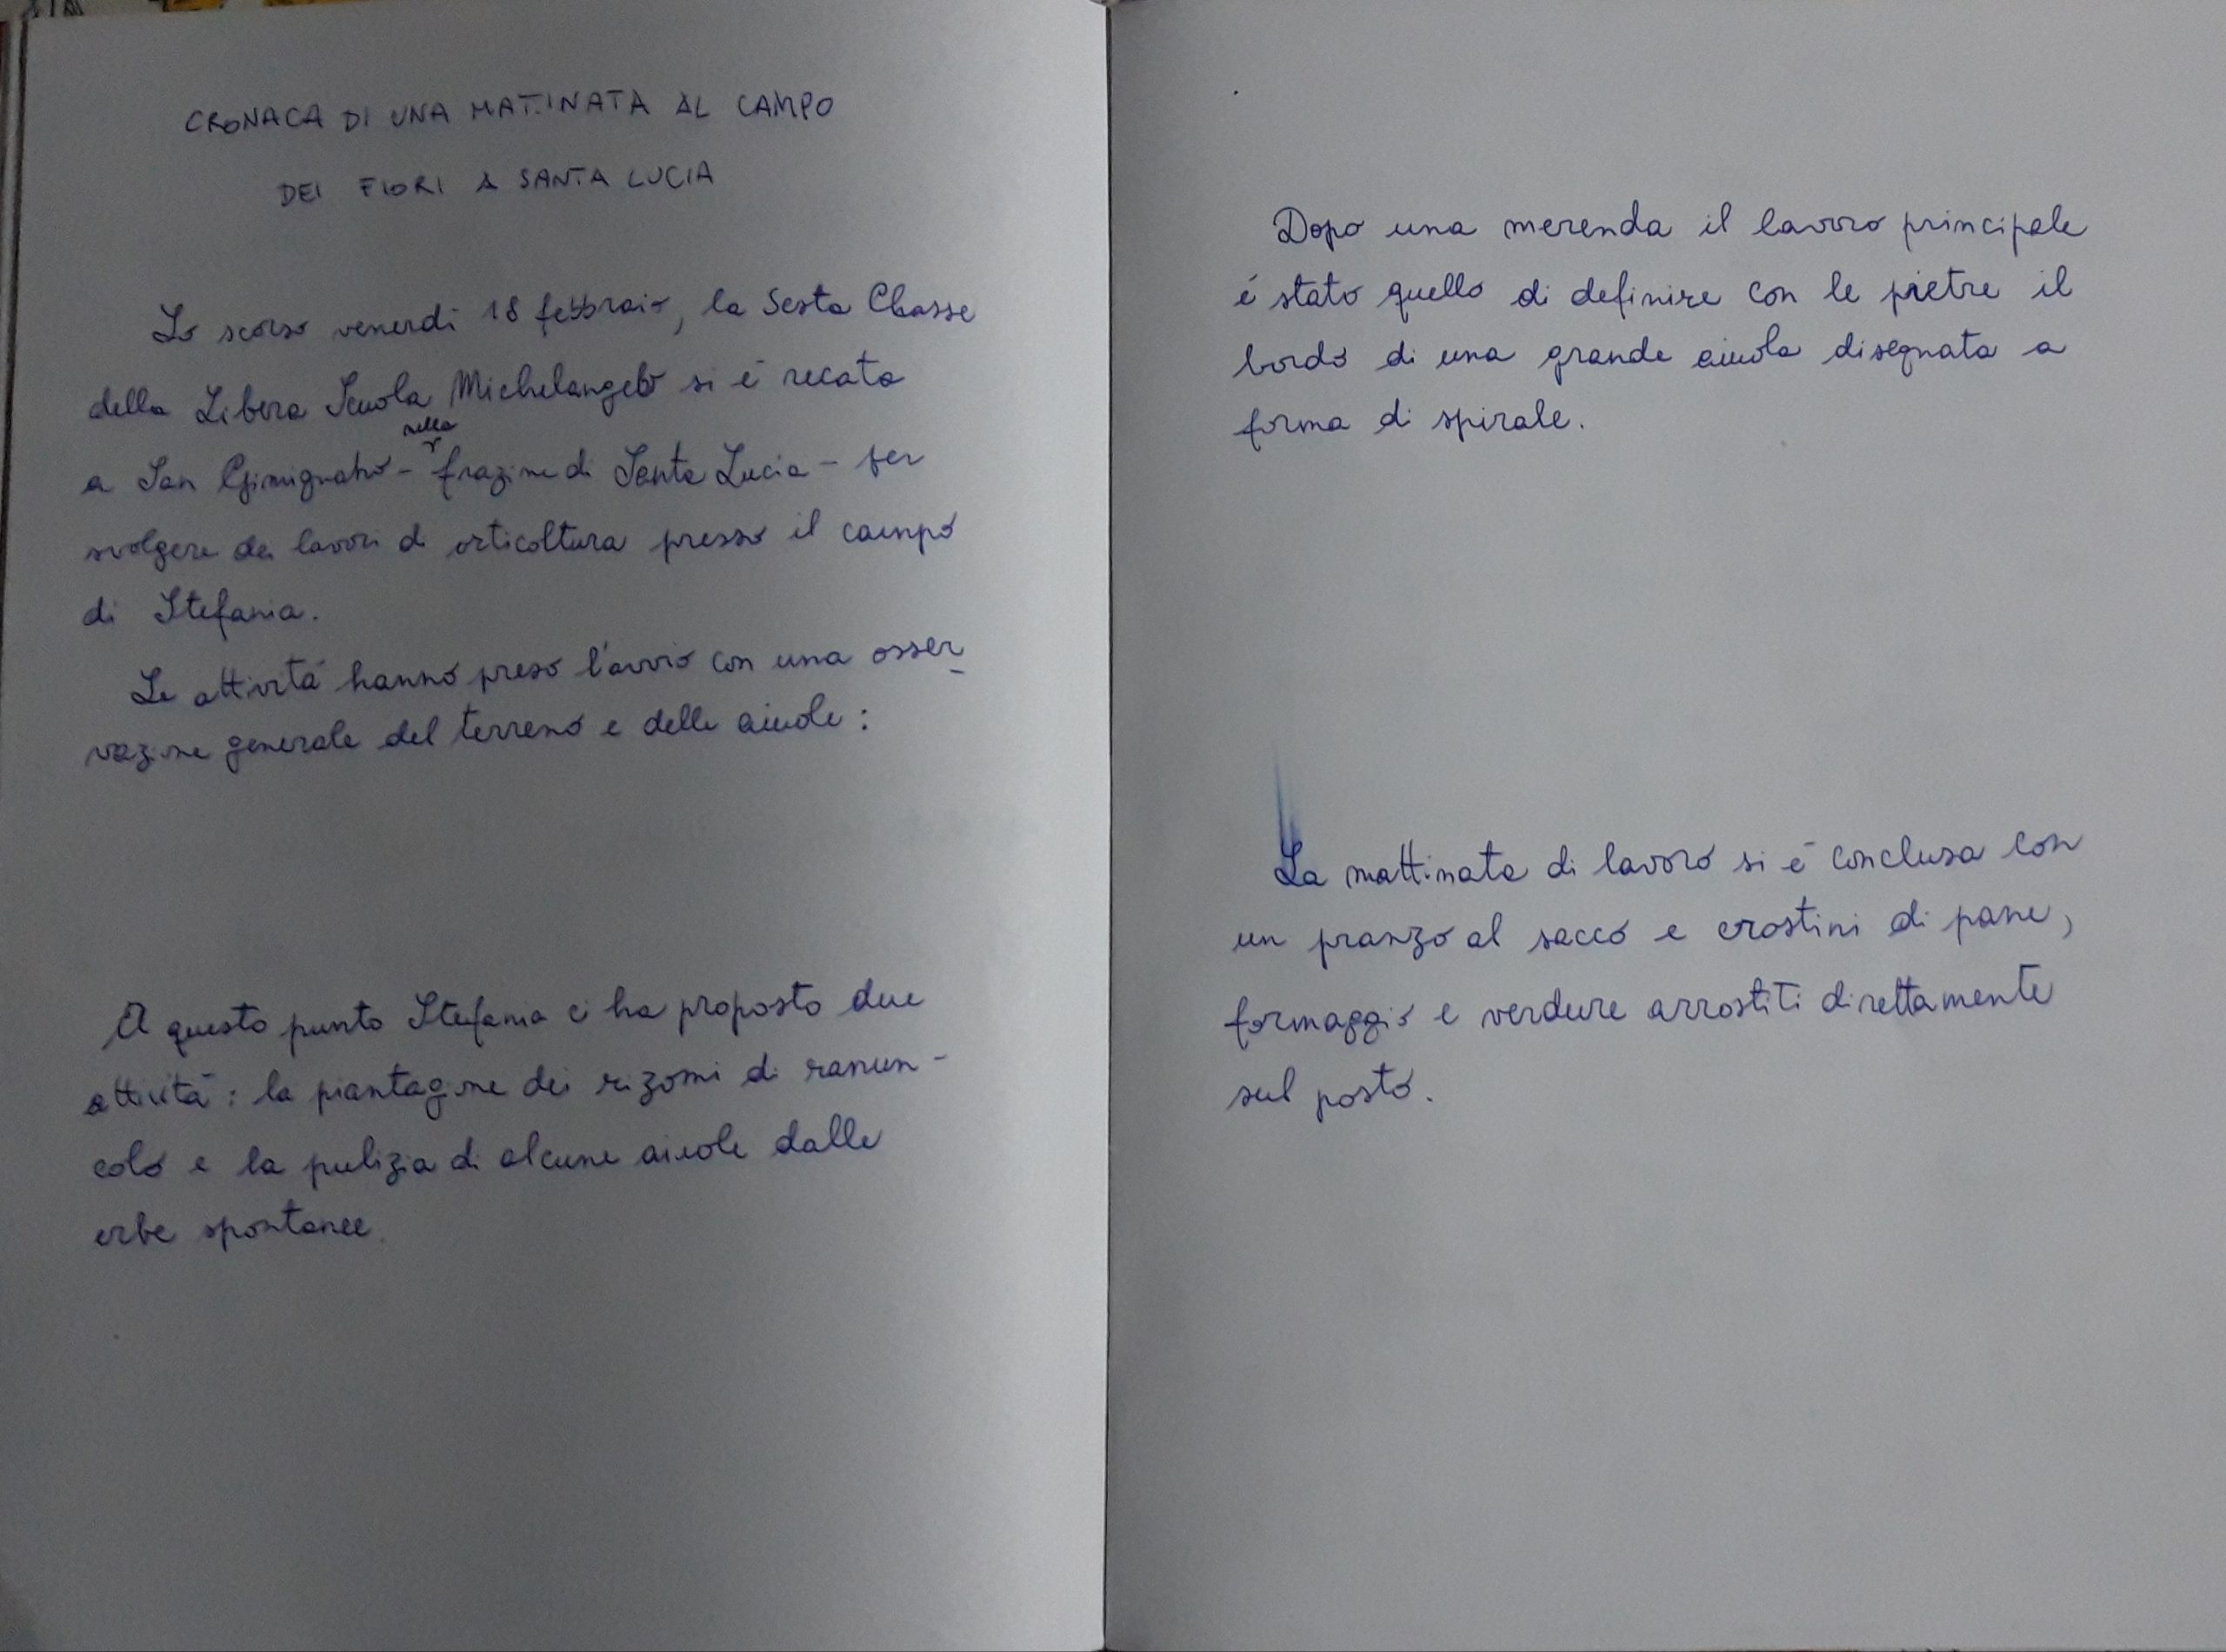 CRONACA DI UNA MATTINATA AL CAMPO
DEI FIORI A SANTA LUCIA
Lo scorso venerdì 18 febbraio, la Sesta Classe
della Libera Scuola Michelangelo si è recata
nella
a San Gimignano - frazione di Santa Lucia - per
svolgere dei lavori di orticoltura presso il campo
di Stefania.
Le attività hanno preso l'avvio con una osser-
vazione generale del terreno e delle aiuole:
A questo punto Stefania ci ha proposto due
attività: la piantagione dei rizomi di ranun-
colo e la pulizia di alcune aiuole dalle
erbe spontanee.
Dopo una merenda il lavoro principale
è stato quello di definire con le pietre il
bordo di una grande aiuola disegnata a
forma di spirale.
La mattinata di lavoro si è conclusa con
un pranzo al sacco e crostini di pane,
formaggio e verdure arrostiti direttamente
sul posto.